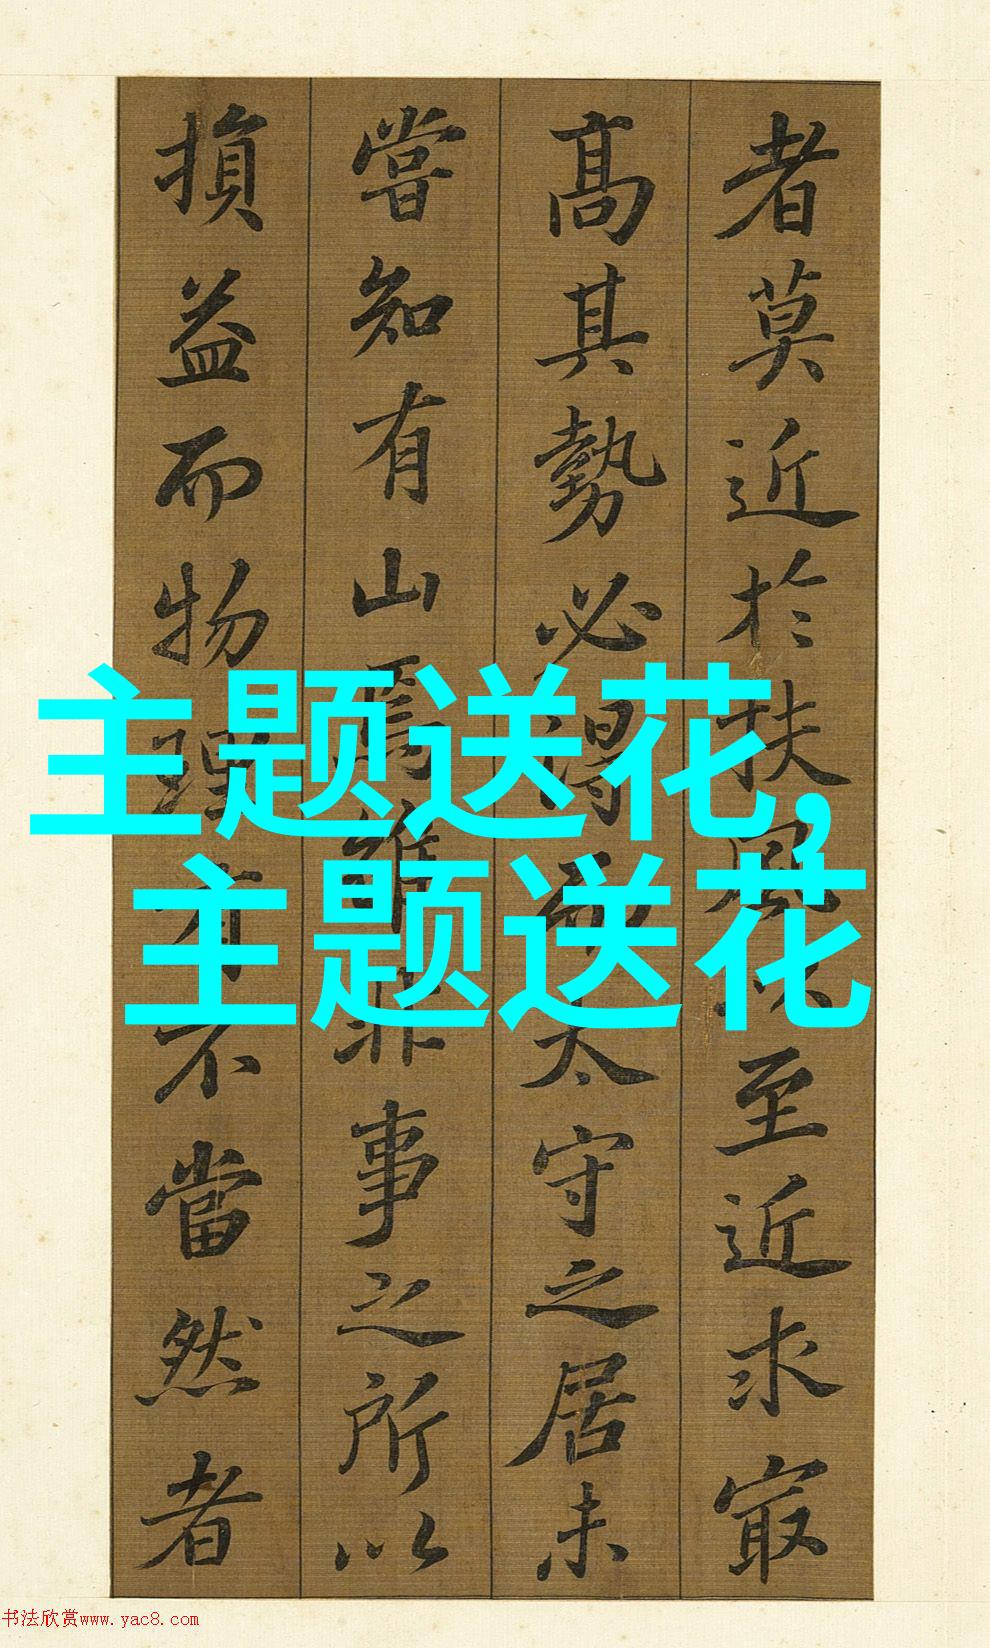 者莫近於扶風以至近求㝡
髙其勢必得而太守之居未
嘗知有山焉雖非事之所以
損益而物理有不當然者
主题送花,
主题送花
书法欣赏www.yac8.com